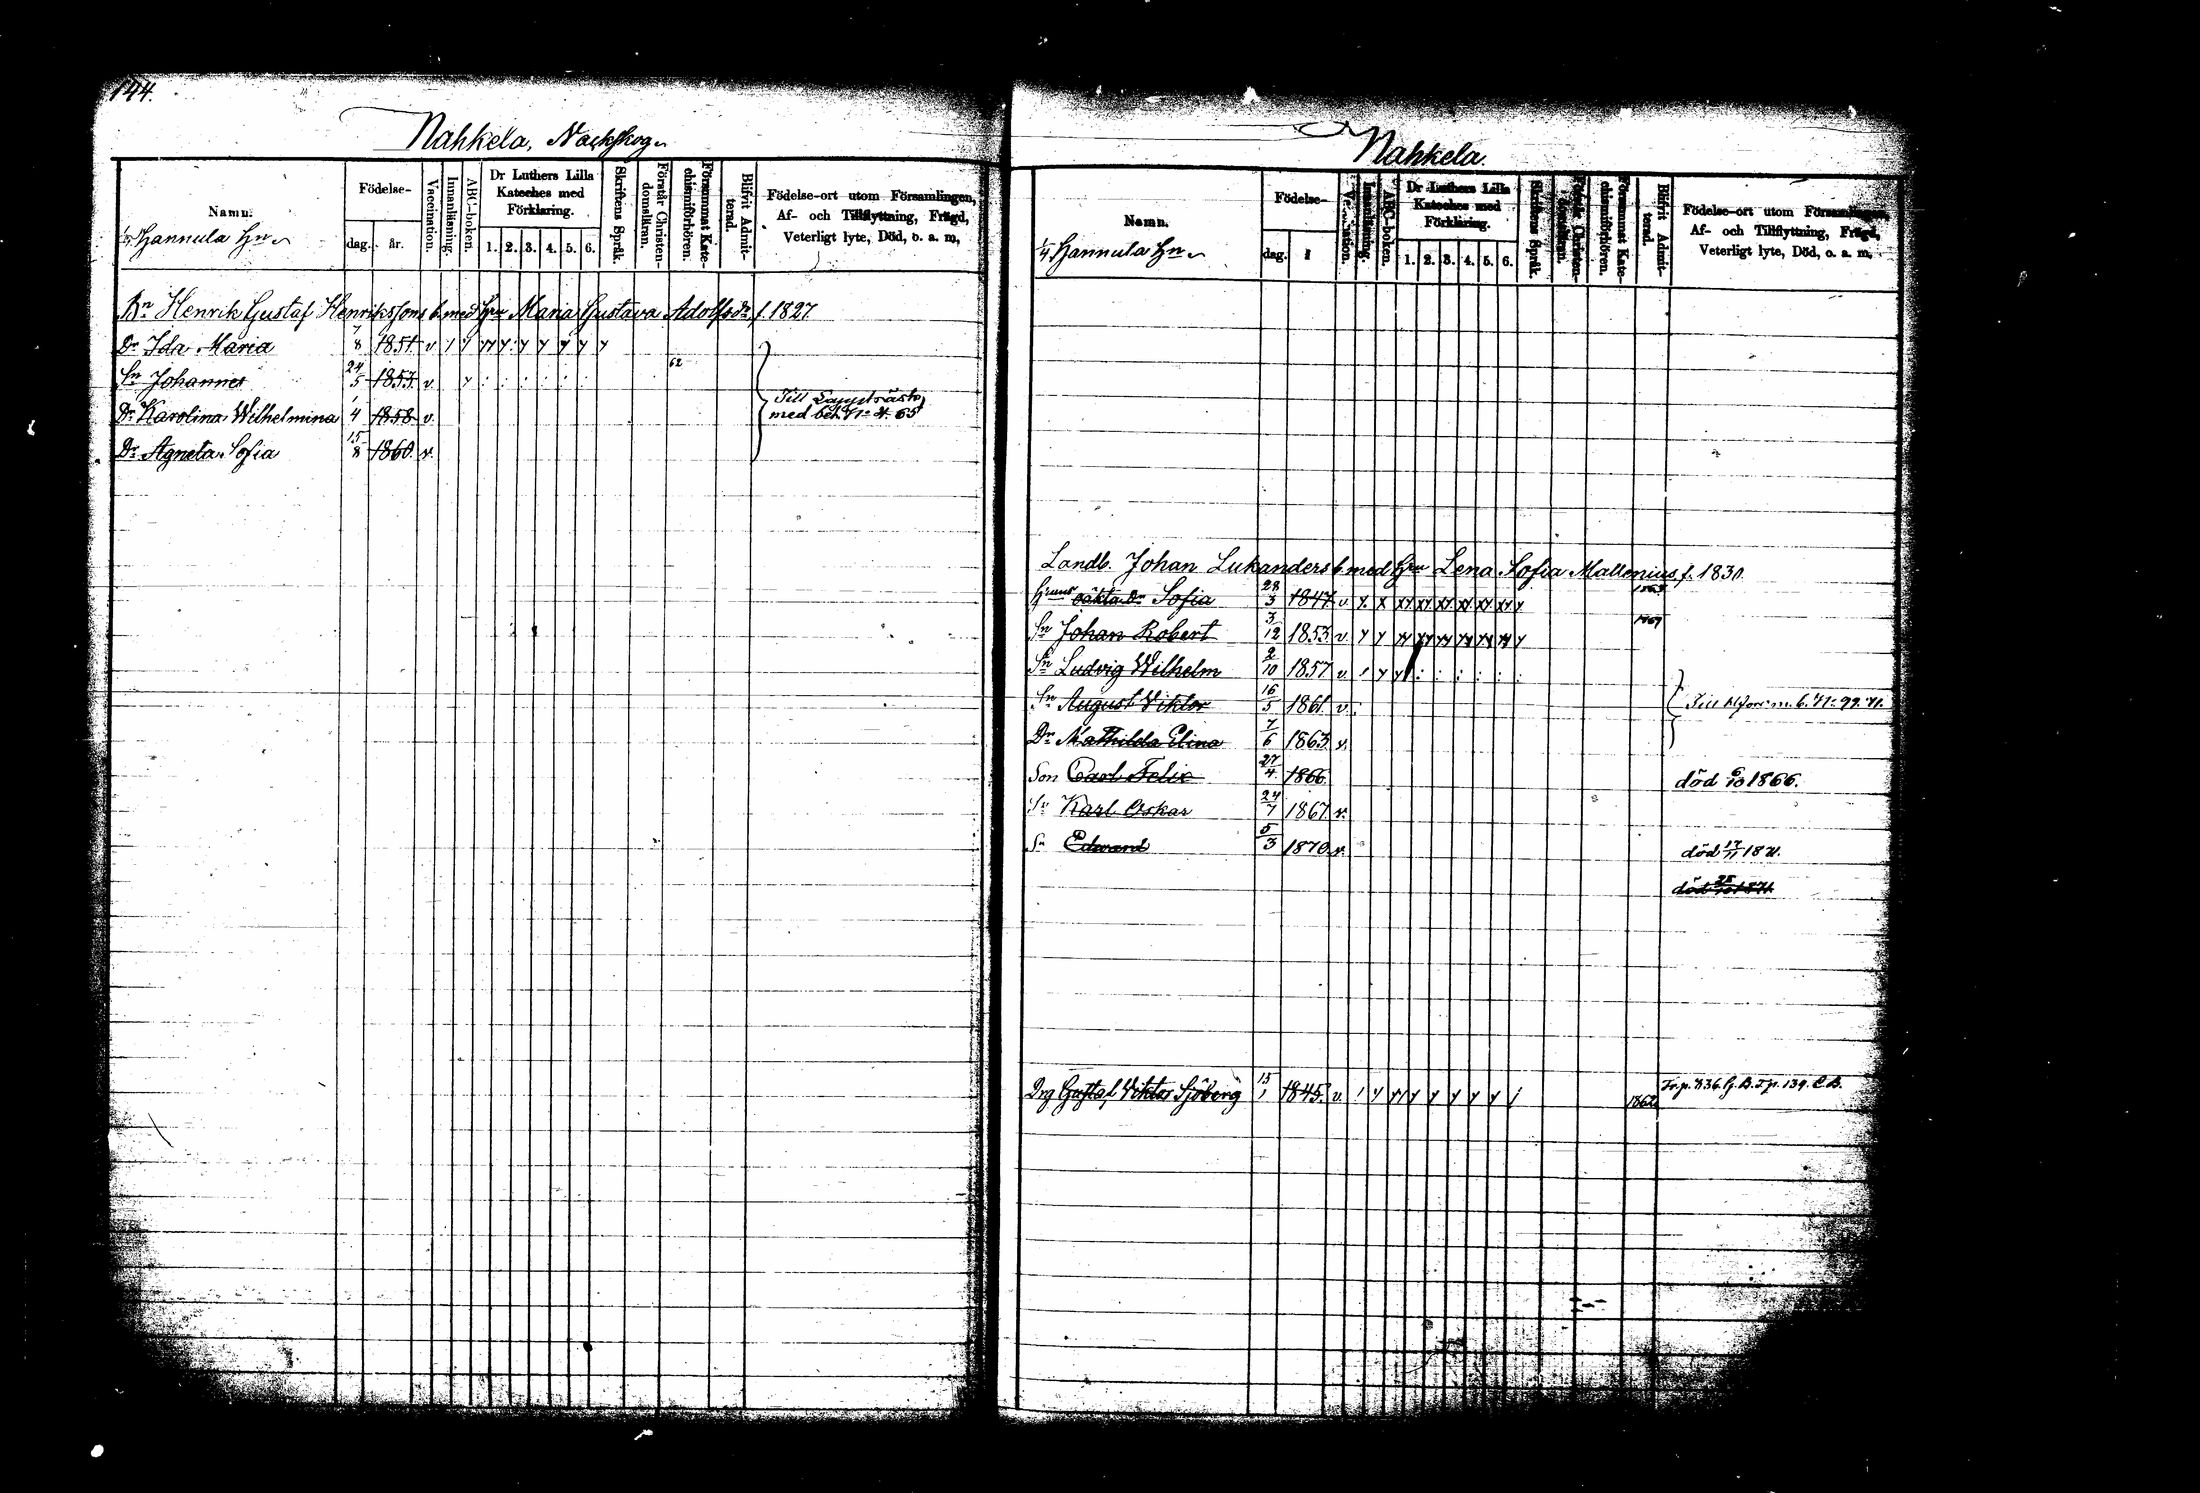 144.
Nahkela, Nackskog
Namn.
Födelse-
dag. år.
Vaccination.
Innanläsning.
ABC-boken.
Dr Luthers Lilla
Kateches med
Förklaring.
1. 2. 3. 4. 5. 6.
Skriftens Språk.
Förstår Christen-
domsläran.
Försummat Kate-
chismiförhören.
Blifvit Admit-
terad.
Födelse-ort utom Församlingen,
Af- och Tillflyttning, Frägd,
Veterligt lyte, Död, o. a. m,
Hannula Hn
Bn Henrik Gustaf Henrikssons b. med Hu Maria Gustava Adolfsdr f. 1827
Dr Ida Maria 7/8 1851 v
Sn Johannes 24/5 1853 v. 62
Dr Karolina Wilhelmina 1/4 1858 v.
Till Lappträsk,
med bet. No 4. 65
Dr Agneta Sofia 15/8 1860 v.
Nahkela.
Namn.
Födelse-
dag.
Innanläsning.
ABC-boken.
Dr Luthers Lilla
Kateches med
Förklaring.
1. 2. 3. 4. 5. 6.
Skriftens Språk.
Förstår Christen-
domsläran.
Försummat Kate-
chismiförhören.
Blifvit Admit-
terad.
Födelse-ort utom Församlingen,
Af- och Tillflyttning, Frägd,
Veterligt lyte, Död, o. a. m,
1/4 Hannula Hn
Landb. Johan Lukanders b. med Hu Lena Sofia Mallenius f. 1830.
Hennes oäkta Dr Sofia 28/3 1847 v
Sn Johan Robert 3/12 1853 v. 1869
Sn Ludvig Wilhelm 2/10 1857 v.
Sn August Viktor 16/5 1861 v.
Dr Mathilda Elina 7/6 1863 v.
Son Carl Felix 27/4 1866 död 6/10 1866.
Sn Karl Oskar 24/7 1867 v.
Sn Edvard 5/3 1870 v. död 17/11 1871.
död 25/10 1871
Drg Gustaf Viktor Sjöberg 15/1 1845. v. 1862
Fr. p. 836 G. B. T. p. 139. C. B.